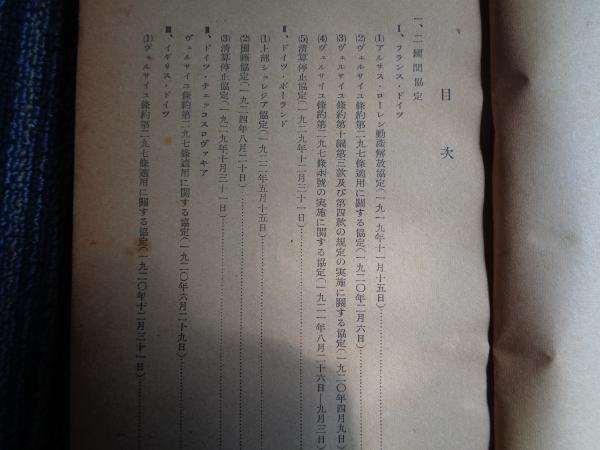 目次
一、二國間協定
Ⅰ、フランス・ドイツ
(1)アルサス・ローレン動産解放協定(一九一九年十一月十五日)
(2)ヴェルサイユ條約第二九七條適用に關する協定(一九二〇年二月六日)
(3)ヴェルサイユ條約第十編第三款及び第四款の規定の実施に關する協定(一九二〇年四月九日)
(4)ヴェルサイユ條約第二九七條 號の実施に関する協定(一九二一年八月二十六日―九月三日)
(5)清算停止協定(一九二九年十二月三一日)
Ⅱ、ドイツ・ポーランド
(1)上部シュレジア協定(一九二二年五月十五日)
(2)国籍協定(一九二四年八月二十日)
(3)清算停止協定(一九二九年十月三十一日)
Ⅲ、ドイツ・チェッコスロヴァキア
ヴェルサイユ條約第二九七條適用に関する協定(一九二〇年六月二十九日)
Ⅲ、イギリス・ドイツ
(1)ヴェルサイユ條約第二九七條適用に関する協定(一九二〇年十二月三十一日)